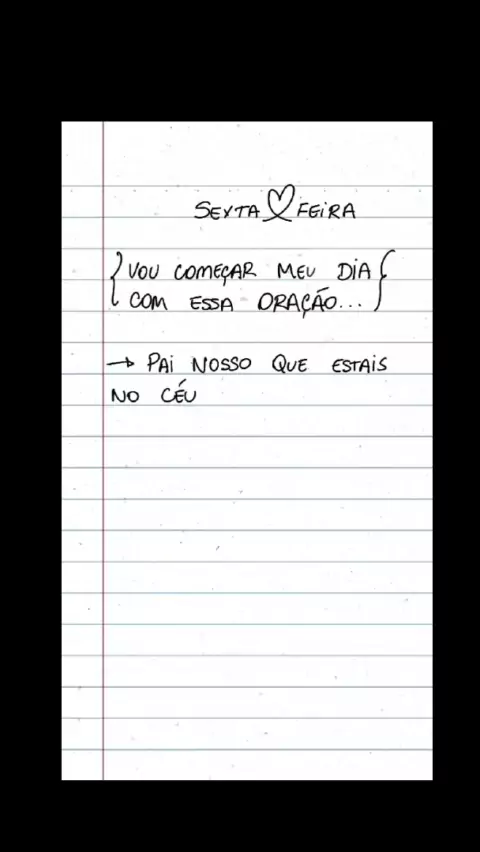 SEXTA FEIRA
VOU COMEÇAR MEU DIA
COM ESSA ORAÇÃO...
→ PAI NOSSO QUE ESTAIS
NO CÉU